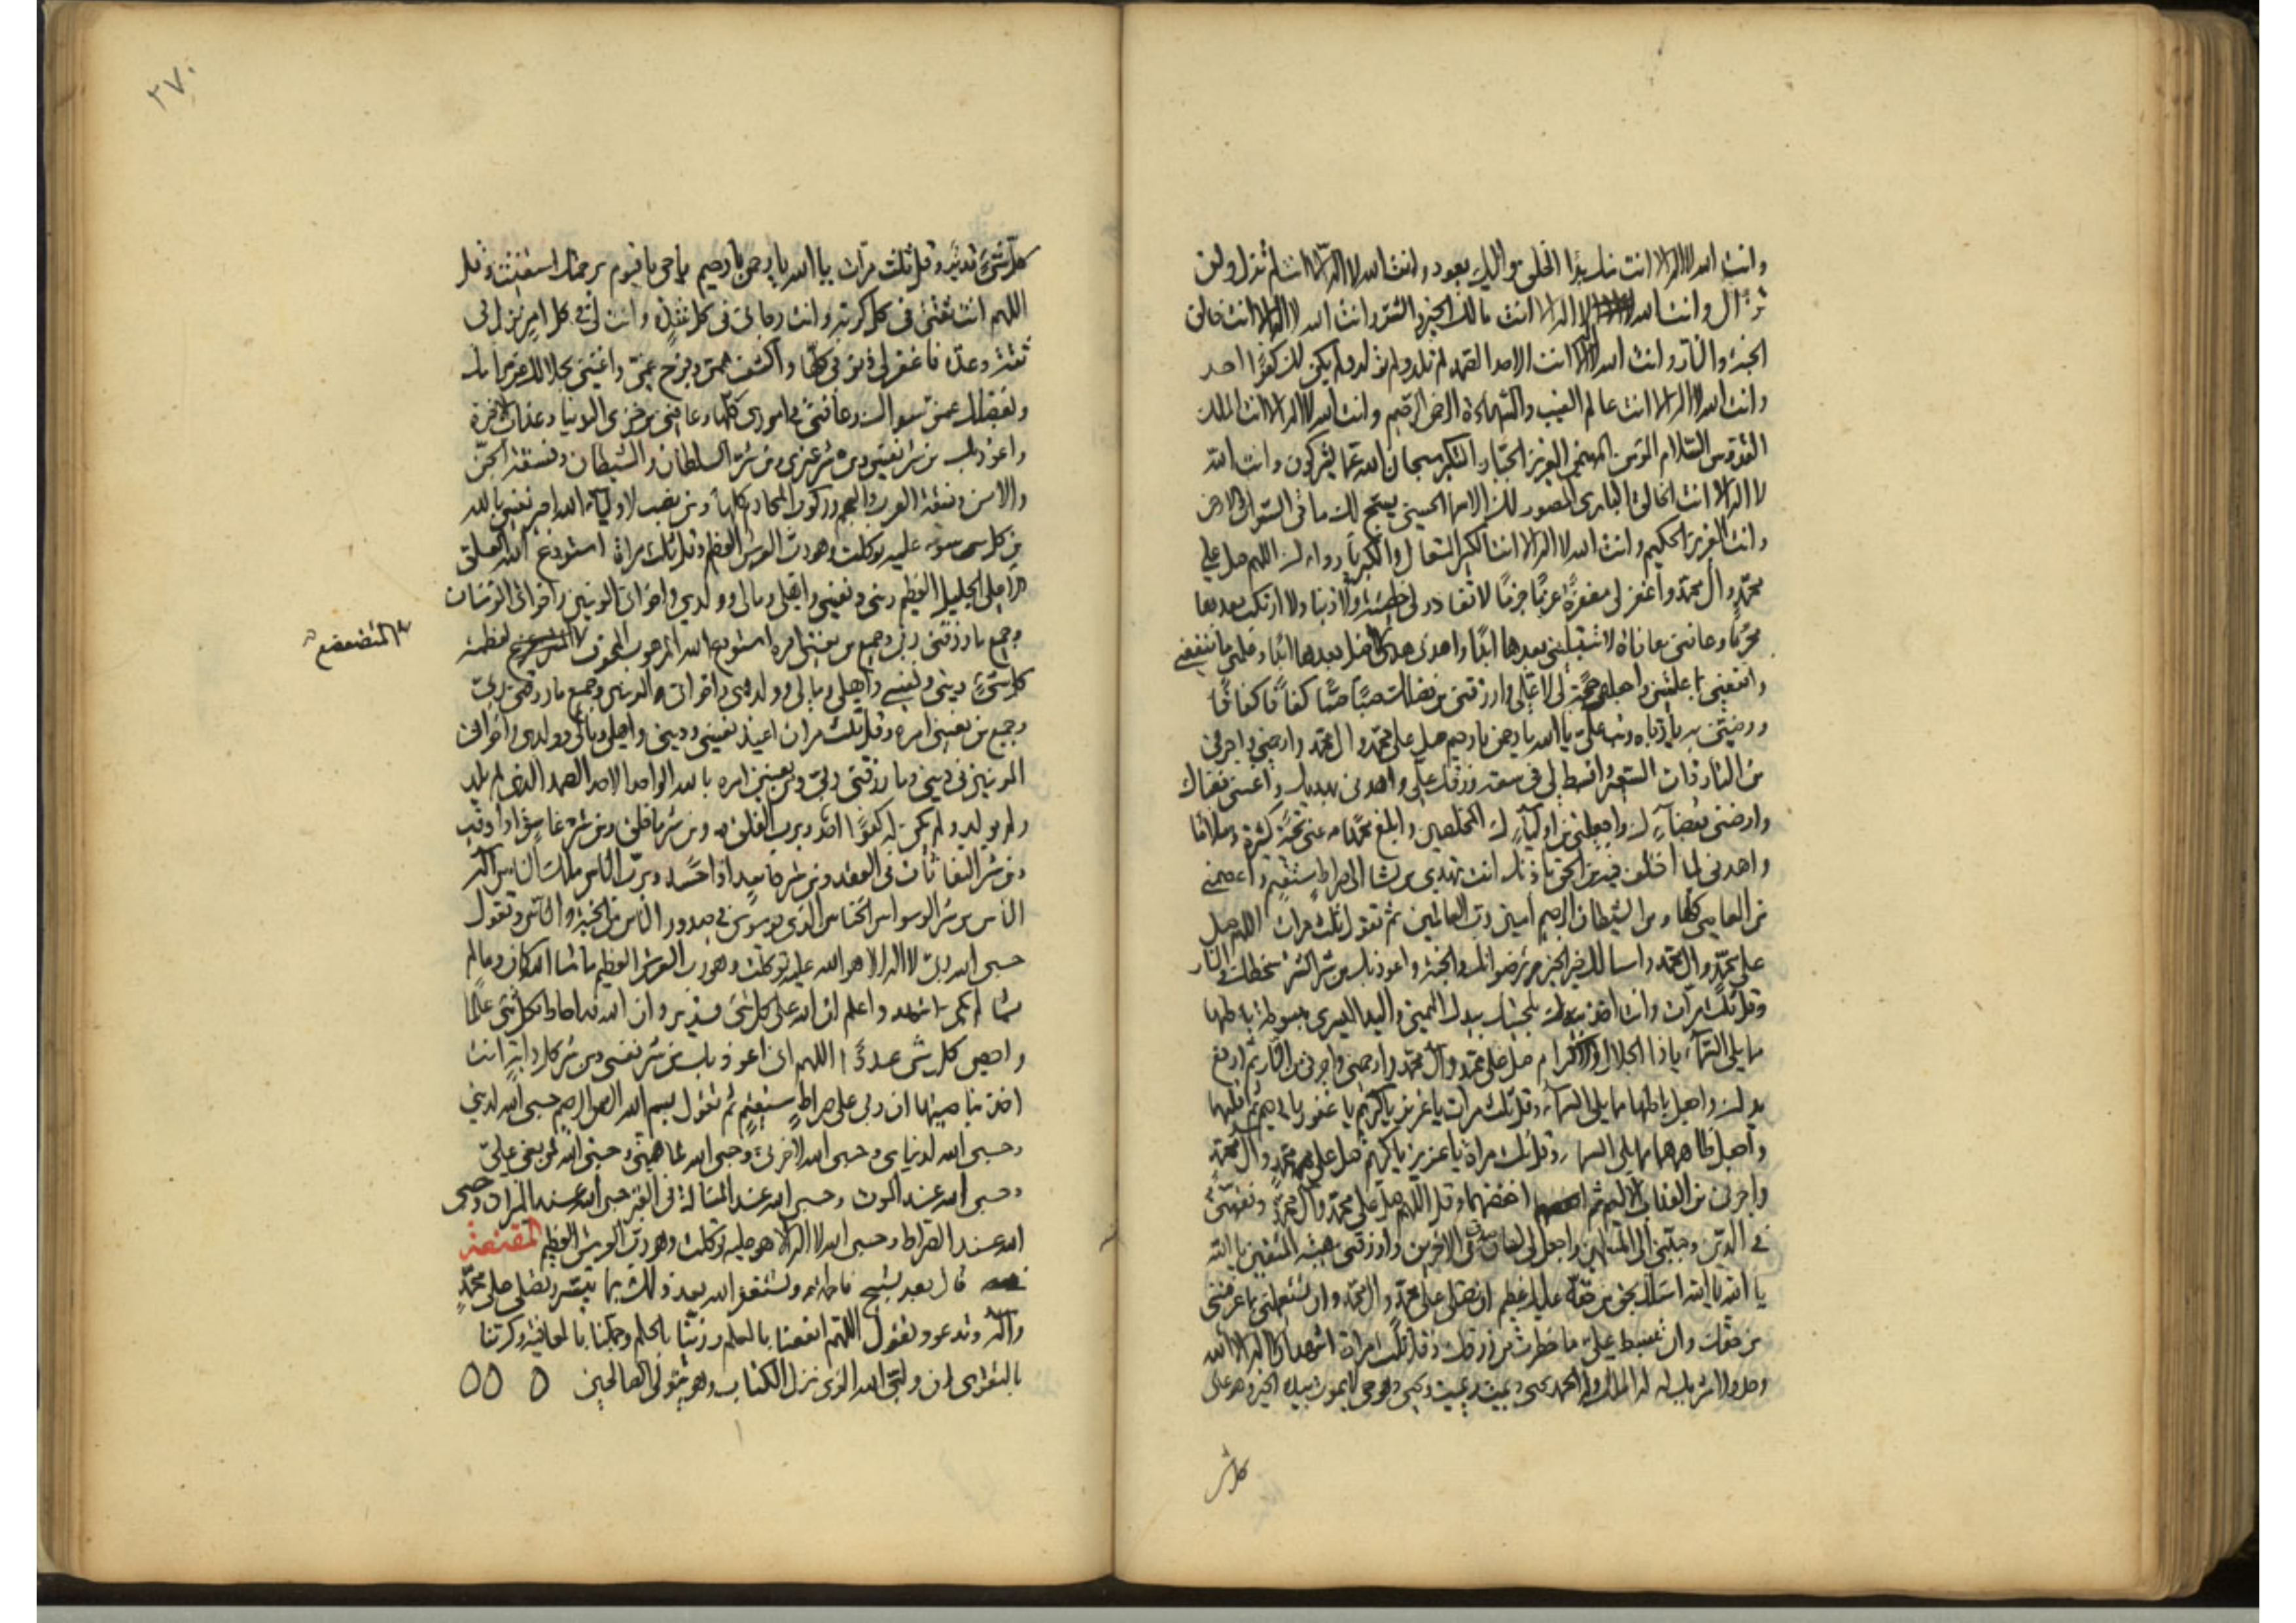 وانت الله لا اله الا انت منك بدا الخلق واليك يعود وانت الله لا اله الا انت لم تزل ولن
تزال وانت الله لا اله الا انت مالك الخير والشر وانت الله لا اله الا انت خالق
الجنة والنار وانت الله لا اله الا انت الاحد الصمد لم تلد ولم تولد ولم يكن لك كفوا احد
وانت الله لا اله الا انت عالم الغيب والشهادة الرحمن الرحيم وانت الله لا اله الا انت الملك
القدوس السلام المؤمن المهيمن العزيز الجبار المتكبر سبحان الله عما يشركون وانت الله
لا اله الا انت الخالق البارئ المصور لك الاسماء الحسنى يسبح لك ما في السموات والارض
وانت العزيز الحكيم وانت الله لا اله الا انت الكبير المتعال والكبرياء رداءك اللهم صل على
محمد وال محمد واغفر لي مغفرة عزما جزما لا تغادر لي خطيئة ولا ذنبا ولا ارتكب بعدها
محرما وعافني معافاة لا تبتليني بعدها ابدا واهدني هدى لا اضل بعدها ابدا وعلمني ما ينفعني
وانفعني بما علمتني واجعله حجة لي لا علي وارزقني من فضلك صبا صبا كفافا كفافا
ورضني به يا رباه وتب علي يا الله يا رحمن يا رحيم صل على محمد وال محمد وارحمني واجرني
من النار ذات السعير وابسط لي في سعة رزقك علي واهدني بهديك واغنني بغناك
وارضني بقضائك واجعلني من اوليائك المخلصين وابلغ محمدا عني تحية كثيرة وسلاما
واهدني لما اختلف فيه من الحق باذنك انك تهدي من تشا الى صراط مستقيم واعصمني
من المعاصي كلها ومن الشيطان الرجيم امين رب العالمين ثم تقول ثلث مرات اللهم صل
على محمد وال محمد واسالك خير الخير رضوانك والجنة واعوذ بك من شر الشر سخطك والنار
وقل ثلث مرات وانت اخذ بلحيتك بيدك اليمنى واليد اليسرى مبسوطة باطنها
مما يلي السماء يا ذا الجلال والاكرام صل على محمد وال محمد وارحمني واجرني من النار ثم ارفع
يدك واجعل باطنها مما يلي السماء وقل ثلث مرات يا عزيز يا كريم يا غفور يا رحيم ثم اقلبها
واجعل ظاهرهما مما يلي السماء وقل ثلث مراة يا عزيز يا كريم صل على محمد وال محمد
واجرني من العذاب الاليم ثم اخفضهما وقل اللهم صل على محمد وال محمد وفقهني
في الدين وحببني الى المسلمين واجعل لي لسان صدق في الاخرين وارزقني هيبة المتقين يا الله
يا الله يا الله اسالك بحق من حقه عليك عظيم ان تصلي على محمد وال محمد وان تستعملني بما عرفتني
من حقك وان تبسط علي ما حظرت من رزقك وقل ثلث مرات اشهد ان لا اله الا الله
وحده لا شريك له له الملك وله الحمد يحيي ويميت ويميت ويحيي وهو حي لا يموت بيده الخير وهو على
كل شئ
٢٧٠
كل شئ قدير وقل ثلث مرات يا الله يا رحمن يا رحيم يا حي يا قيوم برحمتك استغيث وقل
اللهم انت ثقتي في كل كربة وانت رجائي في كل شدة وانت لي في كل امر نزل بي
ثقة وعدة فاغفر لي ذنوبي كلها واكشف همي وفرج غمي واغنني بحلالك عن حرامك
وبفضلك عمن سواك وعافني في اموري كلها وعافني من خزي الدنيا وعذاب الاخرة
واعوذ بك من شر نفسي ومن شر غيري ومن شر السلطان والشيطان وفسقة الجن
والانس وفسقة العرب والعجم وركوب المحارم كلها ومن نصب لاولياء الله اجير نفسي بالله
من كل سوء عليه توكلت وهو رب العرش العظيم وقل ثلث مراة استودع الله العلي
الاعلى الجليل العظيم ديني ونفسي واهلي ومالي وولدي واخواني المؤمنين واخواتي المؤمنات
وجميع ما رزقني ربي وجميع من يعنيني امره استودع الله المرهوب المخوف لعظمته
المتضعضع
كل شئ ديني ونفسي واهلي ومالي وولدي واخواني المؤمنين وجميع ما رزقني ربي
وجميع من يعنيني امره وقل ثلث مرات اعيذ نفسي وديني واهلي ومالي وولدي واخواني
المؤمنين في ديني وما رزقني ربي ومن يعنيني امره بالله الواحد الاحد الصمد الذي لم يلد
ولم يولد ولم يكن له كفوا احد وبرب الفلق من شر ما خلق ومن شر غاسق اذا وقب
ومن شر النفاثات في العقد ومن شر حاسد اذا حسد وبرب الناس ملك الناس اله
الناس من شر الوسواس الخناس الذي يوسوس في صدور الناس من الجنة والناس وتقول
حسبي الله ربي لا اله الا هو الله عليه توكلت وهو رب العرش العظيم ما شا الله كان وما لم
يشا لم يكن اشهد واعلم ان الله على كل شئ قدير وان الله قد احاط بكل شئ علما
واحصى كل شئ عددا اللهم اني اعوذ بك من شر نفسي ومن شر كل دابة انت
اخذ بناصيتها ان ربي على صراط مستقيم ثم تقول بسم الله الرحمن الرحيم حسبي الله لديني
وحسبي الله لدنياي وحسبي الله لاخرتي وحسبي الله لما اهمني وحسبي الله لمن بغى علي
وحسبي الله عند الموت وحسبي الله عند المسالة في القبر حسبي الله عند الميزان وحسبي
الله عند الصراط وحسبي الله لا اله الا هو عليه توكلت وهو رب العرش العظيم المقنعة
قال بعد تسبيح فاطمة وتستغفر الله بعد ذلك بما تيسر وتصلي على محمد
واله وتدعو وتقول اللهم انفعنا بالعلم وزينا بالحلم وجملنا بالعافية وكرمنا
بالتقوى ان وليي الله الذي نزل الكتاب وهو يتولى الصالحين